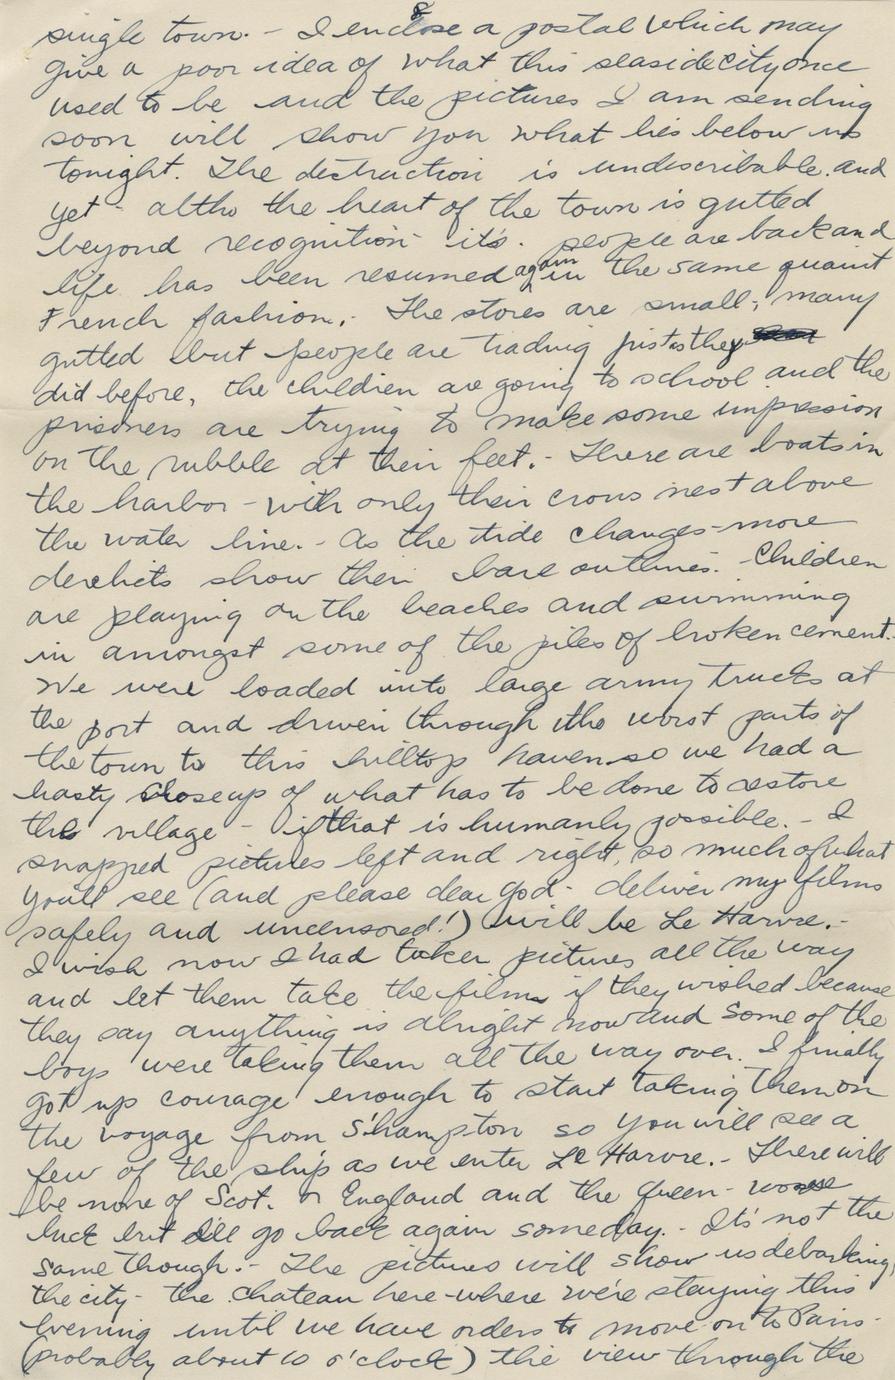 8
single town. - I enclose a postal which may
give a poor idea of what this seaside city once
used to be and the pictures I am sending
soon will show you what lies below us
tonight. The destruction is undescribable and
yet - altho the heart of the town is gutted
beyond recognition - it's. people are back and
life has been resumed again in the same quaint
French fashion. - The stores are small, many
gutted but people are trading just as they
did before, the children are going to school and the
prisoners are trying to make some impression
on the rubble at their feet. - There are boats in
the harbor - with only their crows nest above
the water line. - As the tide changes - more
derelicts show their bare outlines. - Children
are playing on the beaches and swimming
in amongst some of the piles of broken cement.
We were loaded into large army trucks at
the port and driven through the worst parts of
the town to this hilltop haven so we had a
hasty closeup of what has to be done to restore
the village - if that is humanly possible. - I
snapped pictures left and right, so much of what
you'll see (and please dear God - deliver my films
safely and uncensored!) will be Le Harvre. -
I wish now I had taken pictures all the way
and let them take the films if they wished because
they say anything is alright now and some of the
boys were taking them all the way over. I finally
got up courage enough to start taking them on
the voyage from S'hampton so you will see a
few of the ship as we enter Le Harvre. - There will
be none of Scot. or England and the Queen - worse
luck but I'll go back again someday. - It's not the
same though. - The pictures will show us debarking,
the city - the chateau here - where we're staying this
evening until we have orders to move on to Paris -
(probably about 10 o'clock) the view through the